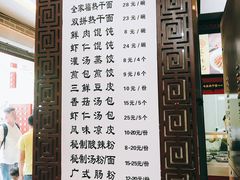 全家福热干面 28元/碗
双拼热干面 23元/碗
鲜肉馄饨 22元/碗
虾仁馄饨 24元/碗
灌汤蒸饺 8元/4个
煎包煎饺 9元/4个
三鲜豆皮 10元/份
香菇汤包 15元/5个
虾仁汤包 25元/5个
风味凉皮 10-20元/份
秘制酸辣粉 12-20元/份
秘制汤粉面 15-25元/份
广式肠粉 12-20元/份